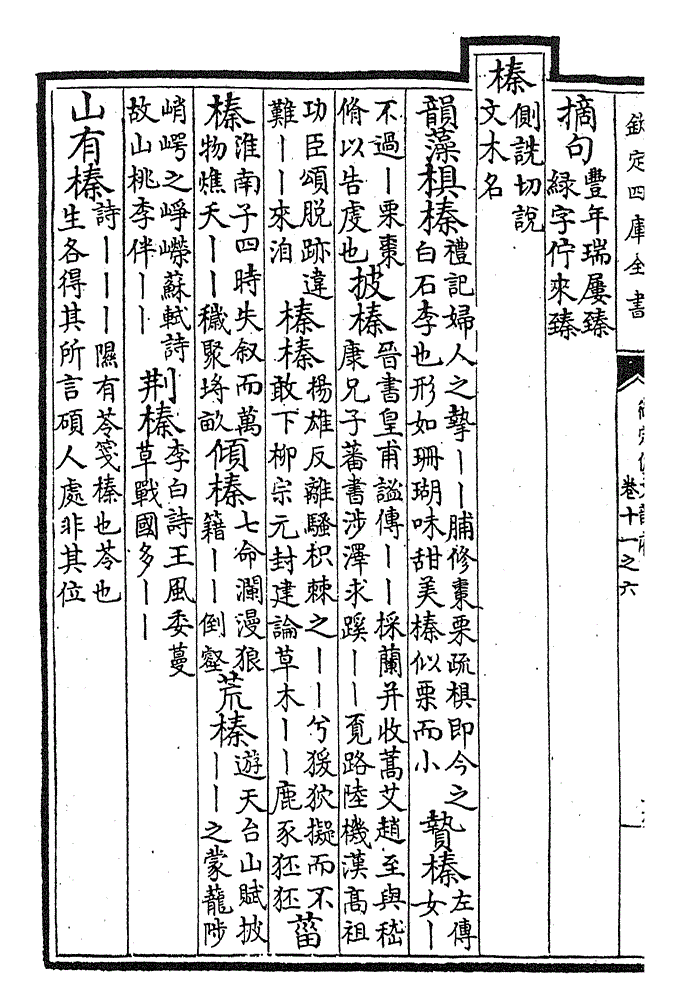 欽定四庫全書
卷十一之六
摘句豐年瑞屢臻
緑字佇來臻
榛側詵切說
文木名
韻藻椇榛禮記婦人之摯丨丨脯修棗栗疏椇即今之
白石李也形如珊瑚味甜美榛似栗而小
贄榛左傳
女丨
不過丨栗棗
脩以告虔也
披榛晉書皇甫謐傳丨丨採蘭并收蒿艾趙至與嵇
康兄子蕃書涉澤求蹊丨丨覓路陸機漢高祖
功臣頌脱跡違
難丨丨來洎
榛榛楊雄反離騷枳棘之丨丨兮猨狖擬而不
敢下柳宗元封建論草木丨丨鹿豕狉狉
菑
榛淮南子四時失叙而萬
物燋夭丨丨穢聚埓畝
傾榛七命瀾漫狼
籍丨丨倒壑
荒榛遊天台山賦披
丨丨之蒙蘢陟
峭崿之崢嶸蘇軾詩
故山桃李伴丨丨
荆榛李白詩王風委蔓
草戰國多丨丨
山有榛詩丨丨丨隰有苓箋榛也苓也
生各得其所言碩人處非其位